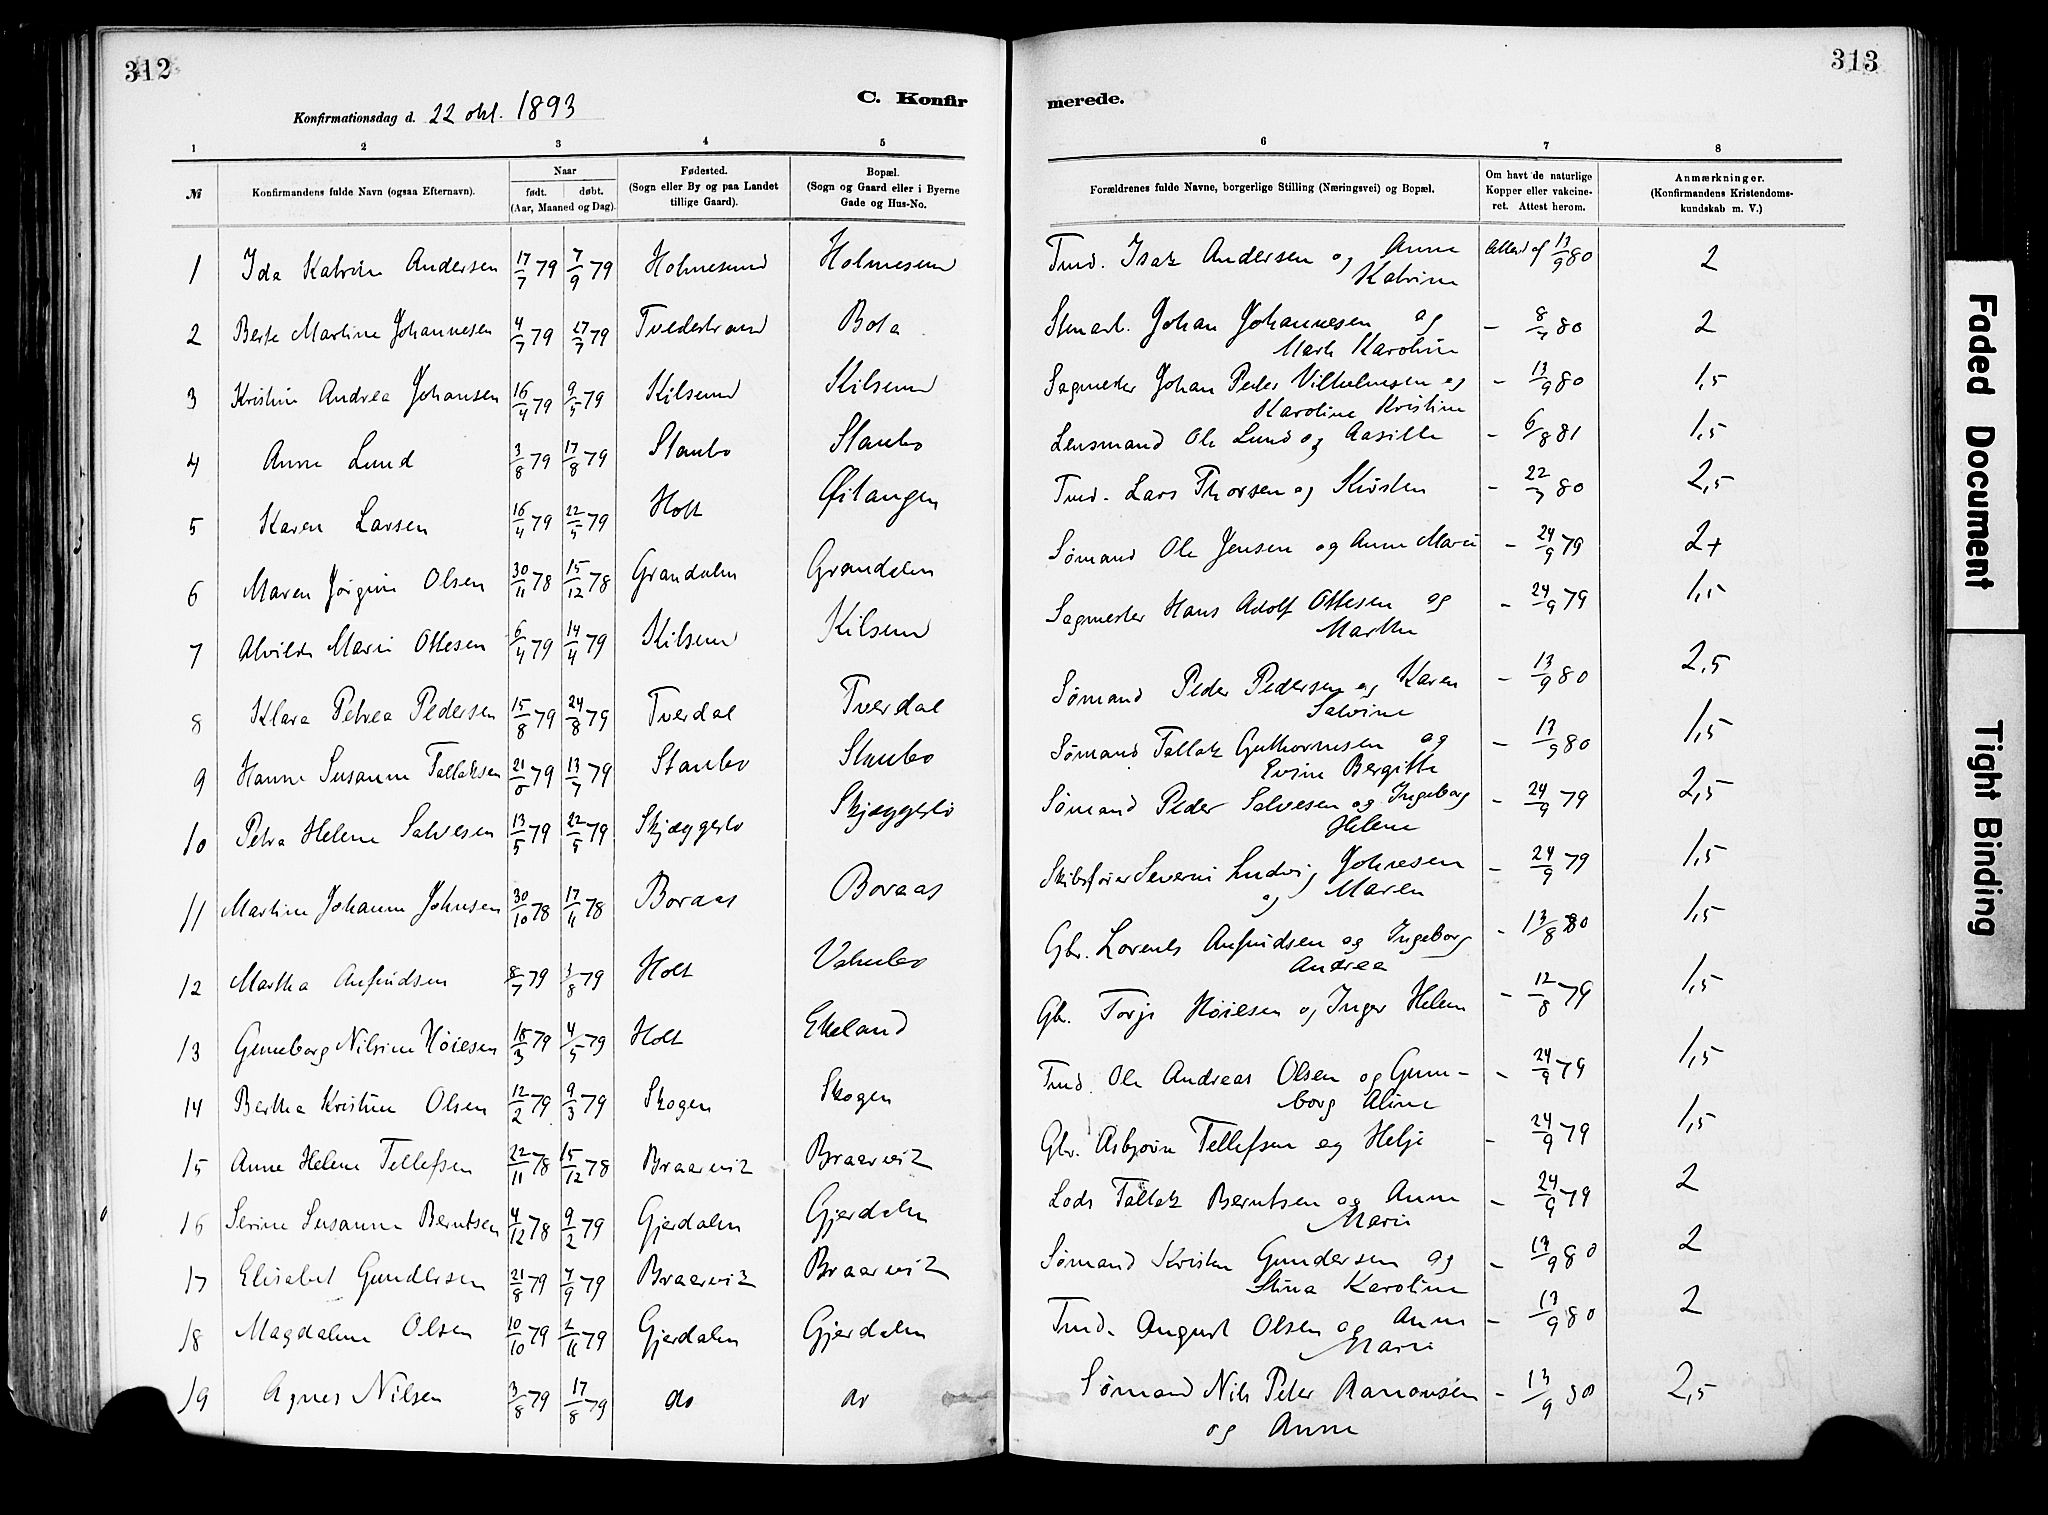 312
Konfirmationsdag d. 22 okt. 1893
C. Konfir
1 2 3 4 5
№ Konfirmandens fulde Navn (ogsaa Efternavn). Naar Fødested. Bopæl.
født. døbt. (Sogn eller By og paa Landet (Sogn og Gaard eller i Byerne
(Aar, Maaned og Dag). tillige Gaard). Gade og Hus-No.
1 Ida Katrine Andersen 17/7 79 7/9 79 Holmesund Holmesund
2 Berte Martine Johannesen 4/7 79 27/7 79 Tvedestrand Bota
3 Kristine Andrea Johansen 16/4 79 9/5 79 Kilsund Kilsund
4 Anne Lund 3/8 79 17/8 79 Staubo Staubo
5 Karen Larsen 16/4 79 22/5 79 Holt Østangen
6 Maren Jørgine Olsen 30/11 78 15/12 78 Grandalen Grandalen
7 Alvilde Marie Ottesen 6/4 79 14/4 79 Kilsund Kilsund
8 Klara Petrea Pedersen 15/8 79 24/8 79 Tverdal Tverdal
9 Hanne Susanne Tallaksen 21/ 79 13/7 79 Staubo Staubo
10 Petra Helene Salvesen 13/5 79 22/5 79 Skjæggeslo Skjæggeslo
11 Martine Johanne Johnsen 30/10 78 17/11 78 Boraas Boraas
12 Martha Anfindsen 8/7 79 3/8 79 Holt
13 Gunneborg Nilsine Høiesen 18/3 79 4/5 79 Holt Ekeland
14 Bertha Kristine Olsen 12/2 79 9/3 79 Skogen Skogen
15 Anne Helene Tellefsen 22/11 78 15/12 78 Braarvik Braarvik
16 Serine Susanne Berntsen 4/12 78 9/2 79 Gjerdalen Gjerdalen
17 Elisabet Gundersen 21/8 79 7/9 79 Braarvik Braarvik
18 Magdalene Olsen 10/10 79 2/11 79 Gjerdalen Gjerdalen
19 Agnes Nilsen 3/8 79 17/8 79 do do
313
merede.
6 7 8
Forældrenes fulde Navne, borgerlige Stilling (Næringsvei) og Bopæl. Om havt de naturlige Anmærkninger.
Kopper eller vakcine- (Konfirmandens Kristendoms-
ret. Attest herom. kundskab m. V.)
Tmd. Isak Andersen og Anne Attest af 13/9 80 2
Katrine
Stenarb. Johan Johannesen og - 8/7 80 2
Marte Karoline
Sagmester Johan Peder Vilhelmsen og - 13/9 80 1,5
Karoline Kristine
Lensmand Ole Lund og Aasille - 6/8 81 1,5
Tmd. Lars Thorsen og Kirsten - 22/7 80 2,5
Sømand Ole Jensen og Anne Marie - 24/9 79 2+
Sagmester Hans Adolf Ottesen og - 24/9 79 1,5
Marthe
Sømand Peder Pedersen og Karen - 13/9 80 2,5
Salvine
Sømand Tallak Guthormsen og - 13/9 80 1,5
Evine Bergitte
Sømand Peder Salvesen og Ingeborg - 24/9 79 2,5
Helene
Skibsfører Severin Ludvig Johnesen - 24/9 79 1,5
og Maren
Gbr. Lorents Anfindsen og Ingeborg - 13/8 80 1,5
Andrea
Gbr. Torje Høiesen og Inger Helene - 12/8 79 1,5
Tmd. Ole Andreas Olsen og Gunn- - 24/9 79 1,5
borg Aline
Gbr. Asbjørn Tellefsen og Helje - 24/9 79 1,5
Lods Tallak Berntsen og Anne - 24/9 79 2
Marie
Sømand Kristen Gundersen og - 13/9 80 2
Stina Karoline
Tmd. August Olsen og Anne - 13/9 80 2
Marie
Sømand Nils Peter Aanonsen - 13/9 80 2,5
og Anne
Faded Document
Tight Binding